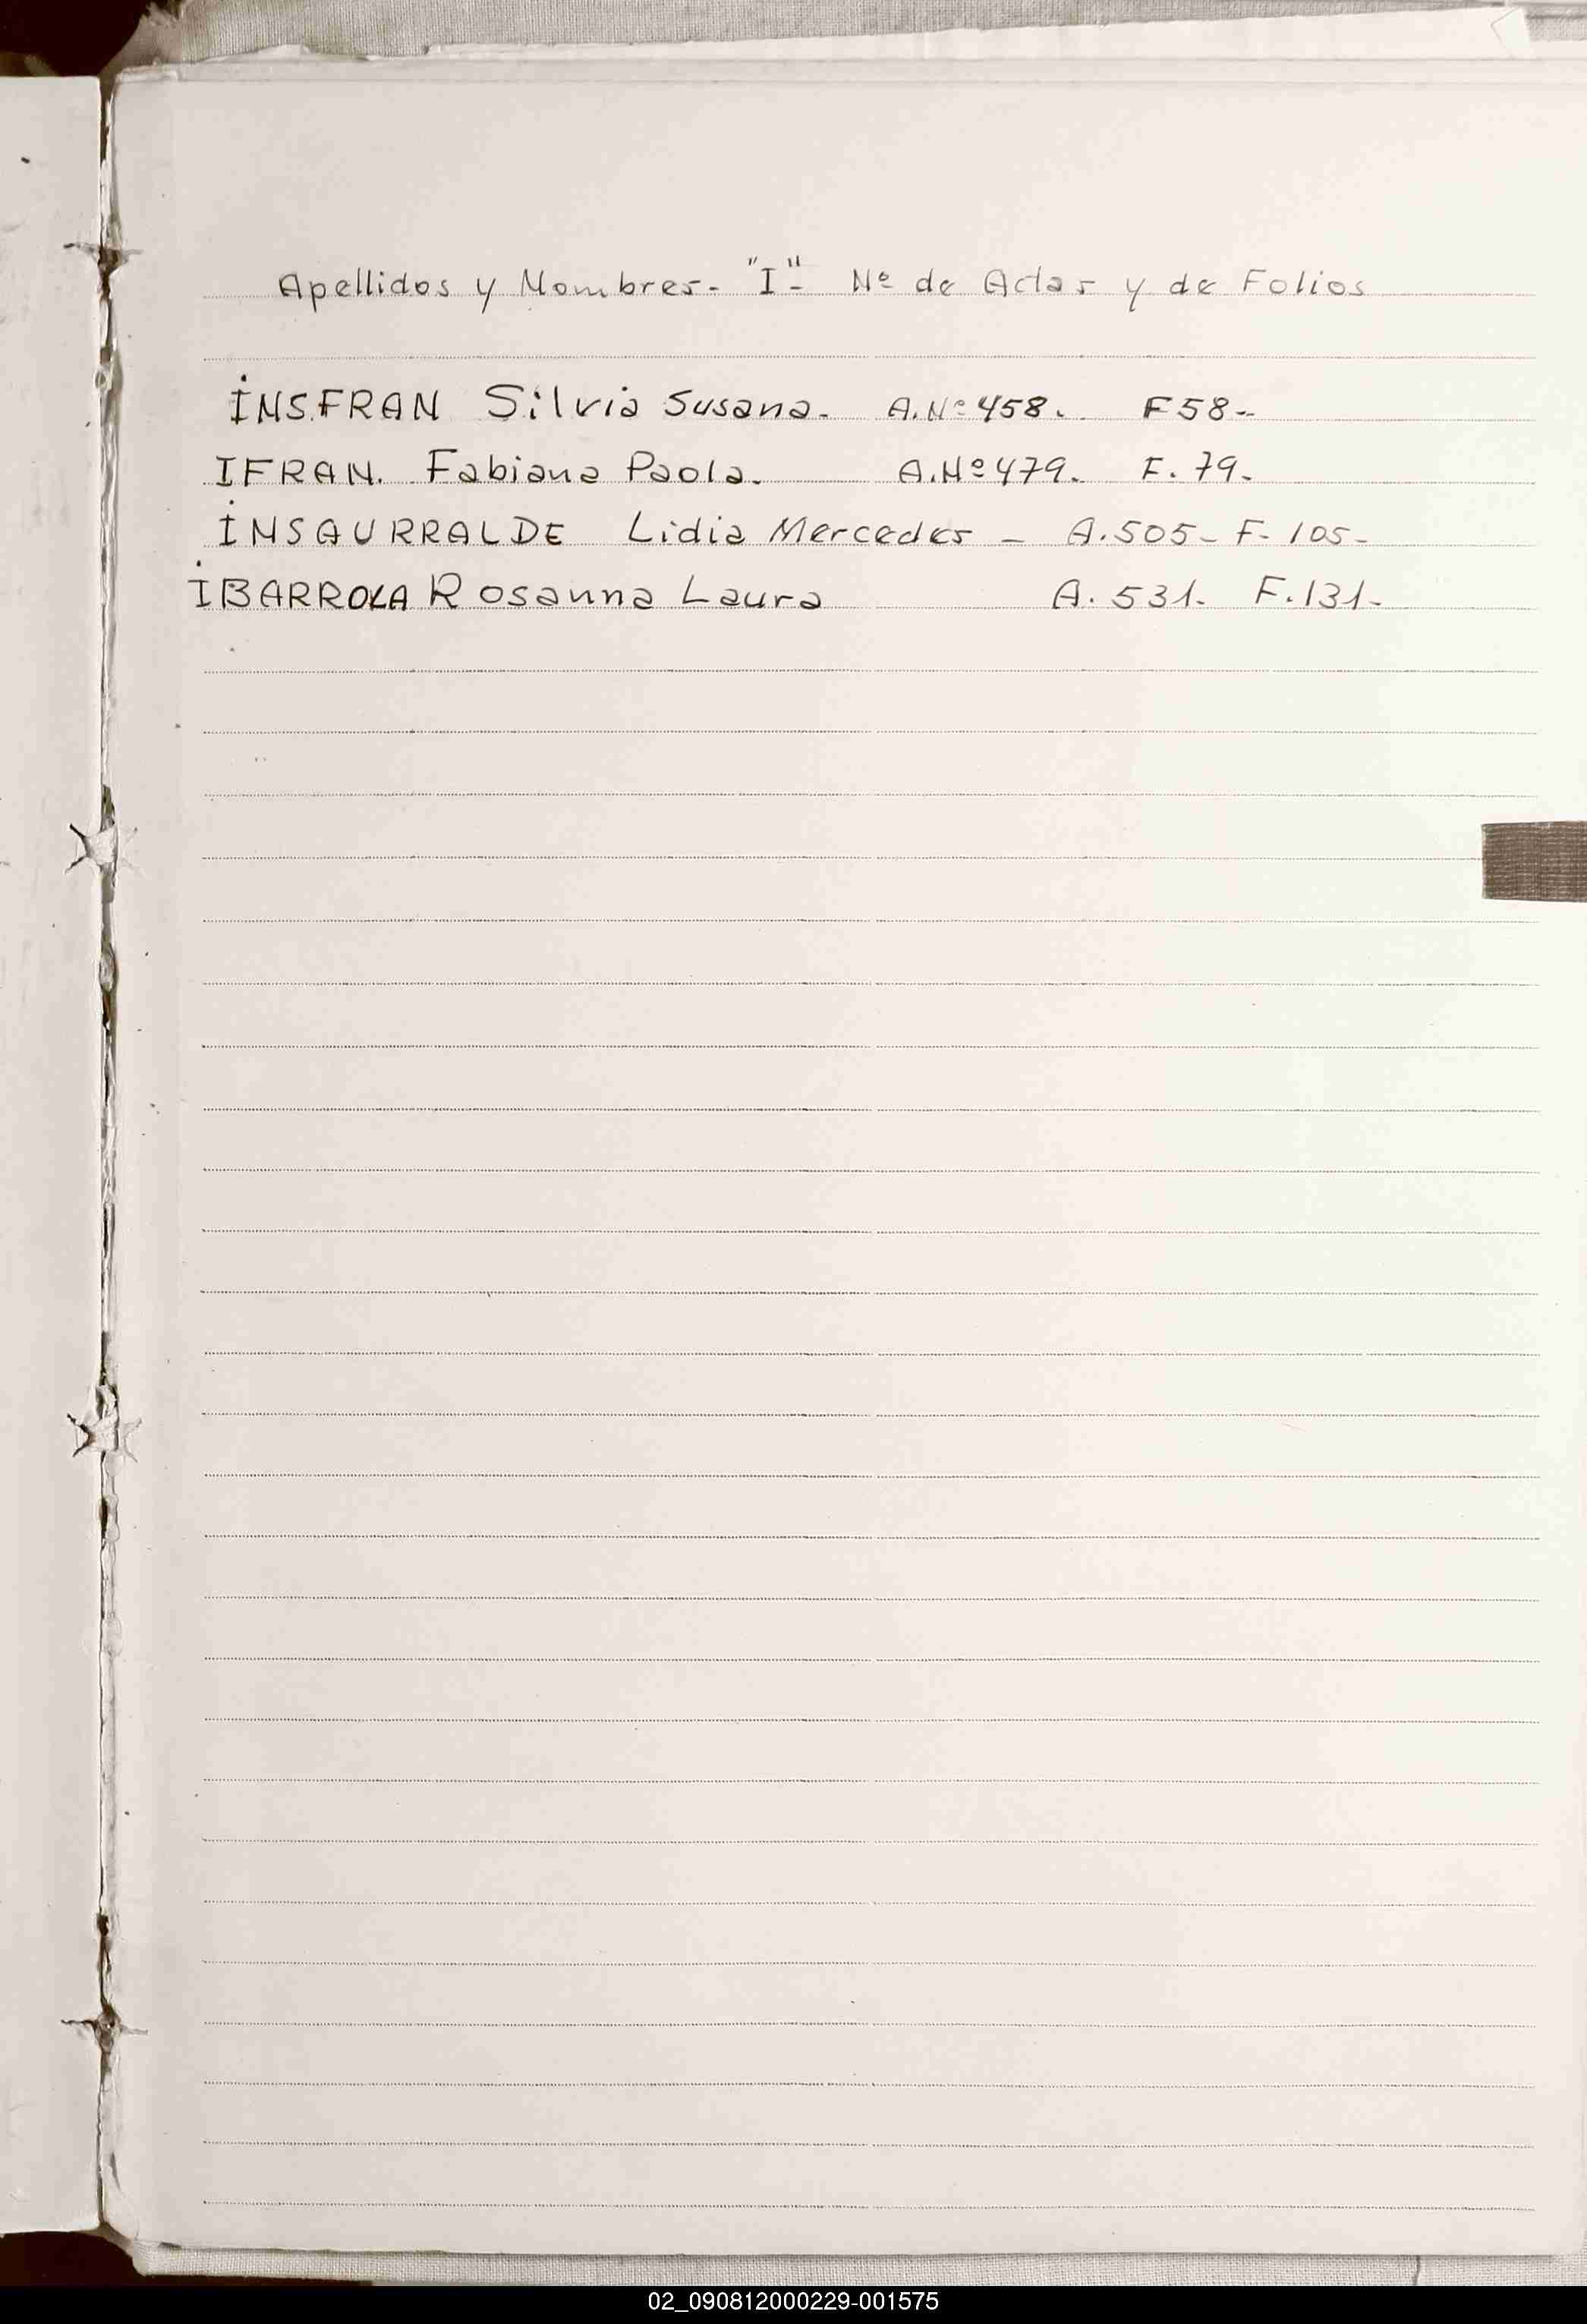 Apellidos y Nombres- "I"- Nº de Actas y de Folios
INSFRAN Silvia Susana. A.Nº 458. F58-
IFRAN. Fabiana Paola. A.Nº 479. F. 79.
INSAURRALDE Lidia Mercedes - A. 505- F- 105-
IBARROLA Rosanna Laura A. 531. F. 131-
02_090812000229-001575